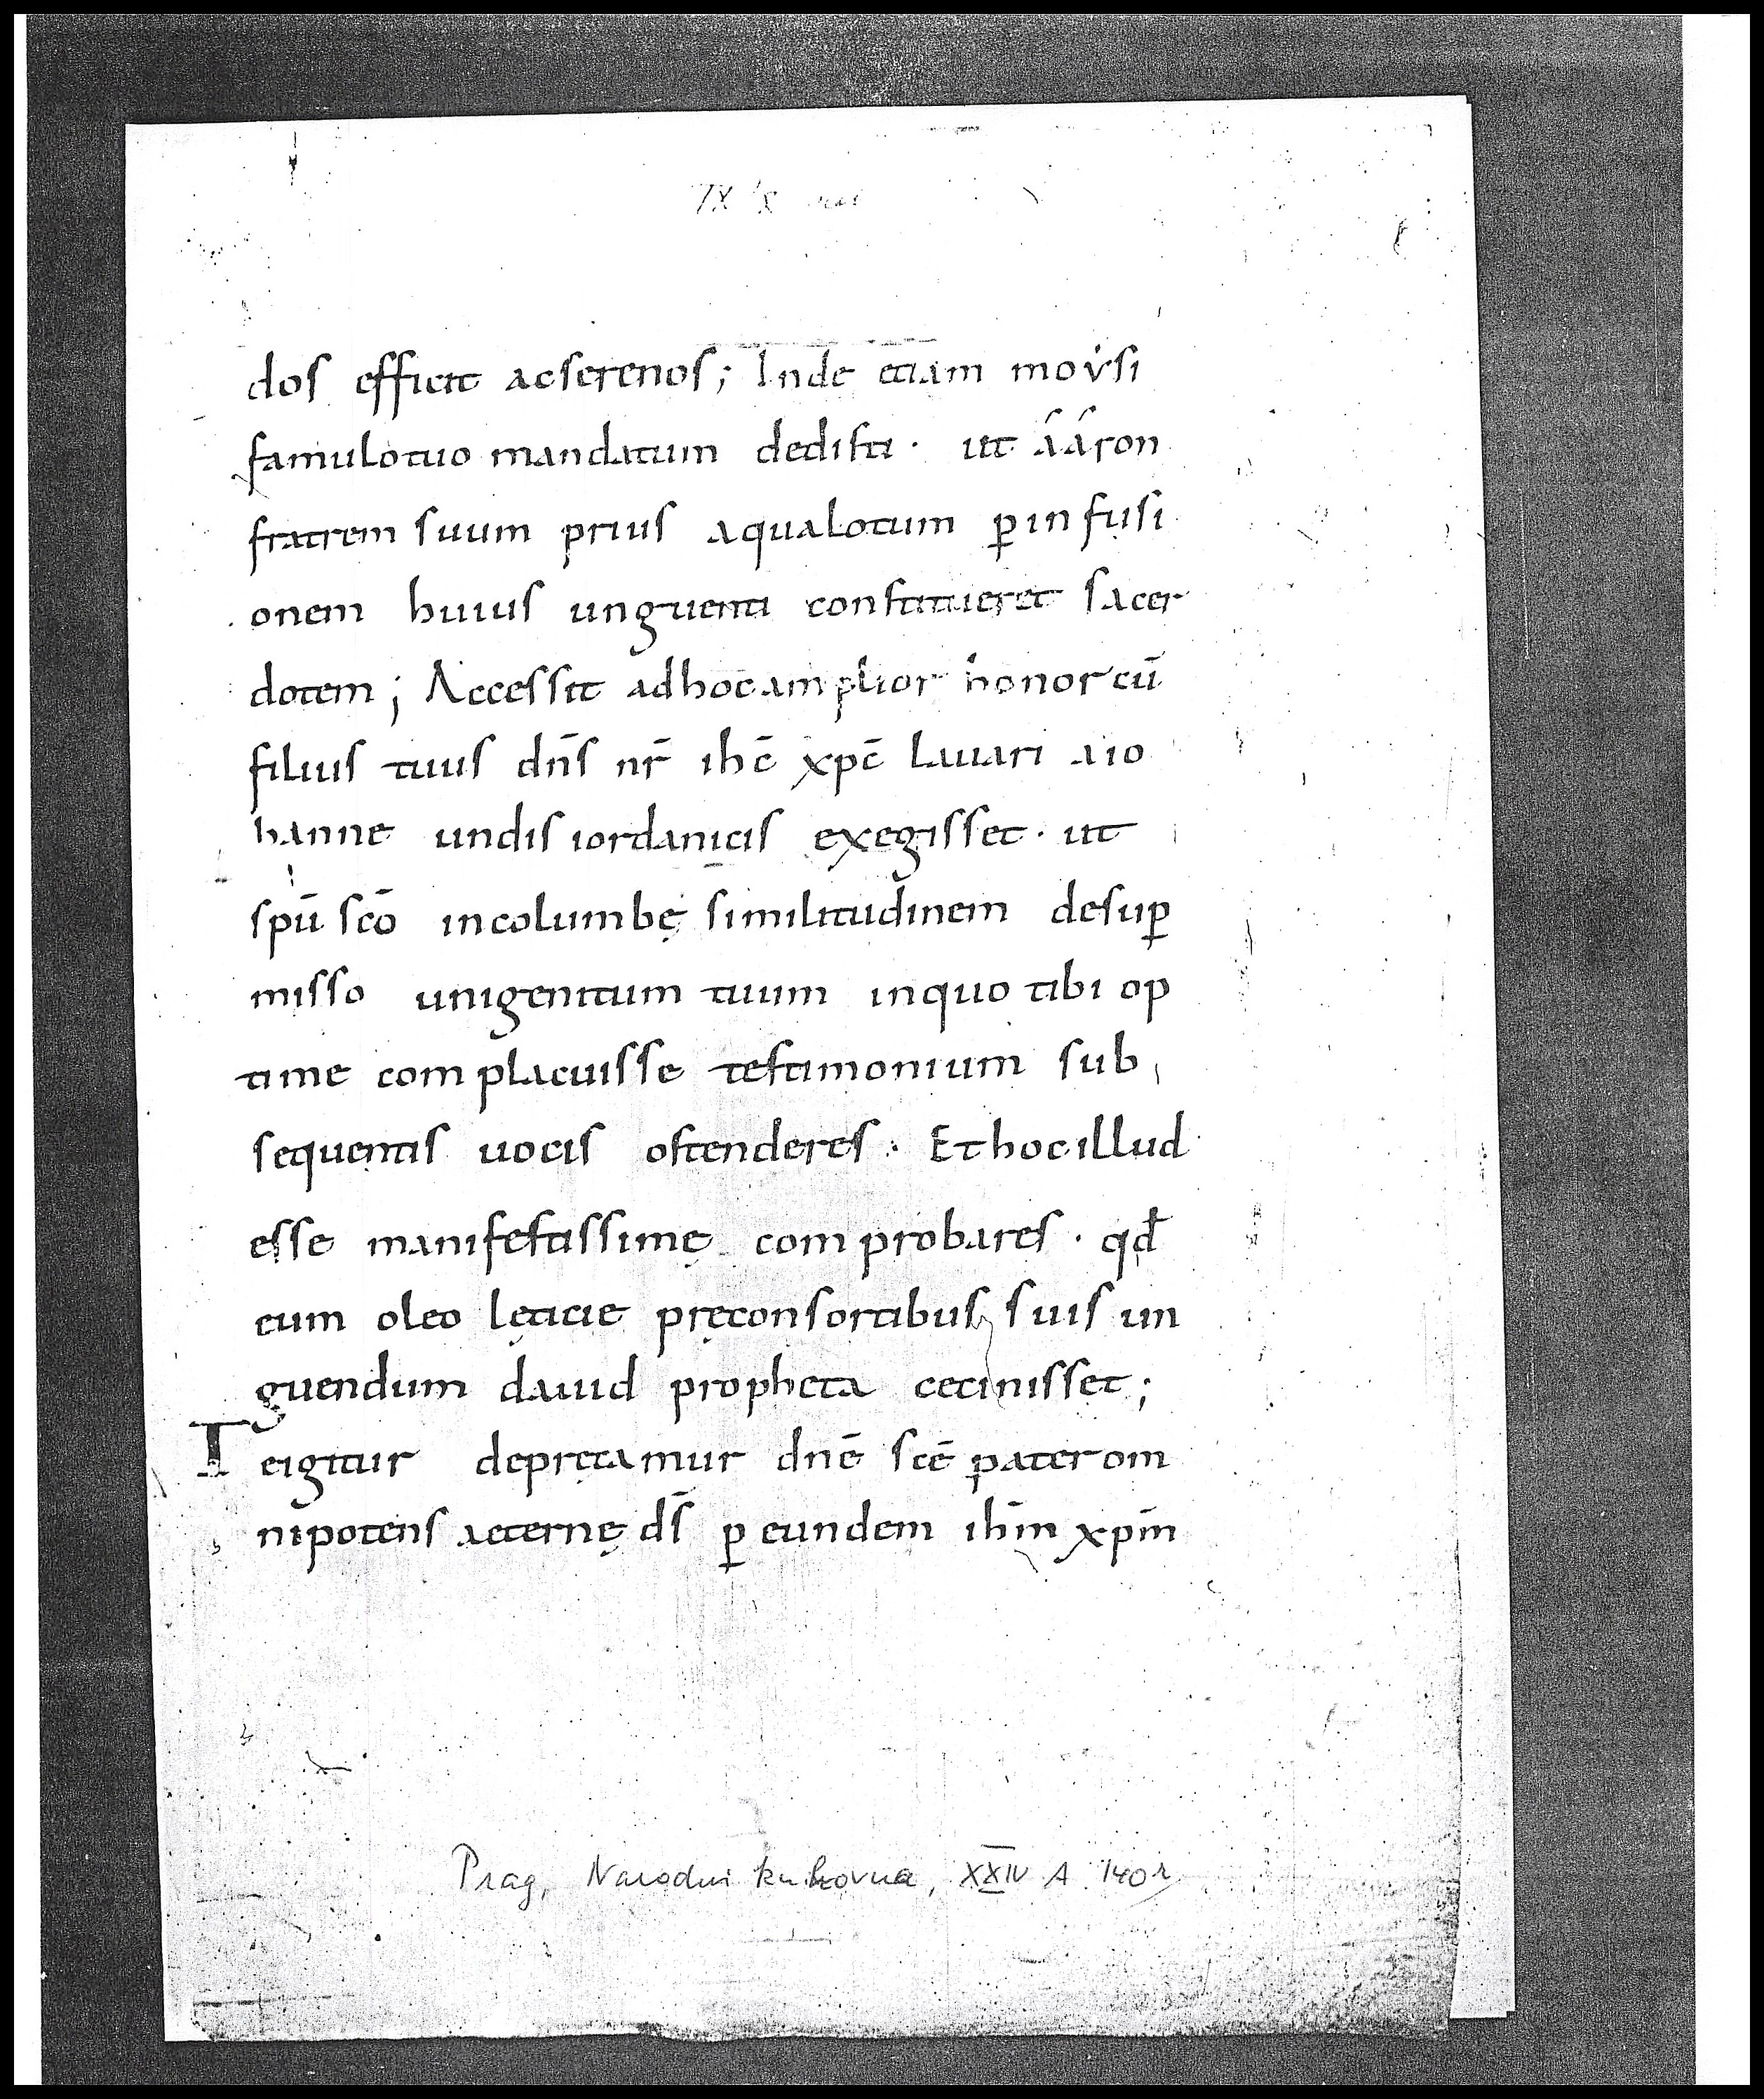 IX X
dos efficit acserenos; Inde etiam moẏsi
famulotuo mandatum dedisti · ut áárón
fratrem suum prius aqualotum p̲infusi
onem huius unguenti constitueret sacer
dotem; Accessit adhocamplior honorcū
filius tuus dn̄s nr̄ ihc̄ xpc̄ lauari aio
hanne undis iordanicis exegisset · ut
spū scō incolumbę similitudinem desup̲
misso unigenitum tuum inquo tibi op
time complacuisse testimonium sub
sequentis uocis ostenderes · Ethocillud
esse manifestissimę comprobares · qđ
eum oleo lęticie pręconsortibus suis un
guendum dauid propheta cecinisset;
T eigitur deprecamur dnē scē pateromn
nipotens aeternę ds̄ p̲ eundem ihm̄ xpm̄
Prag, Narodni knihovna, XXIV A 140r